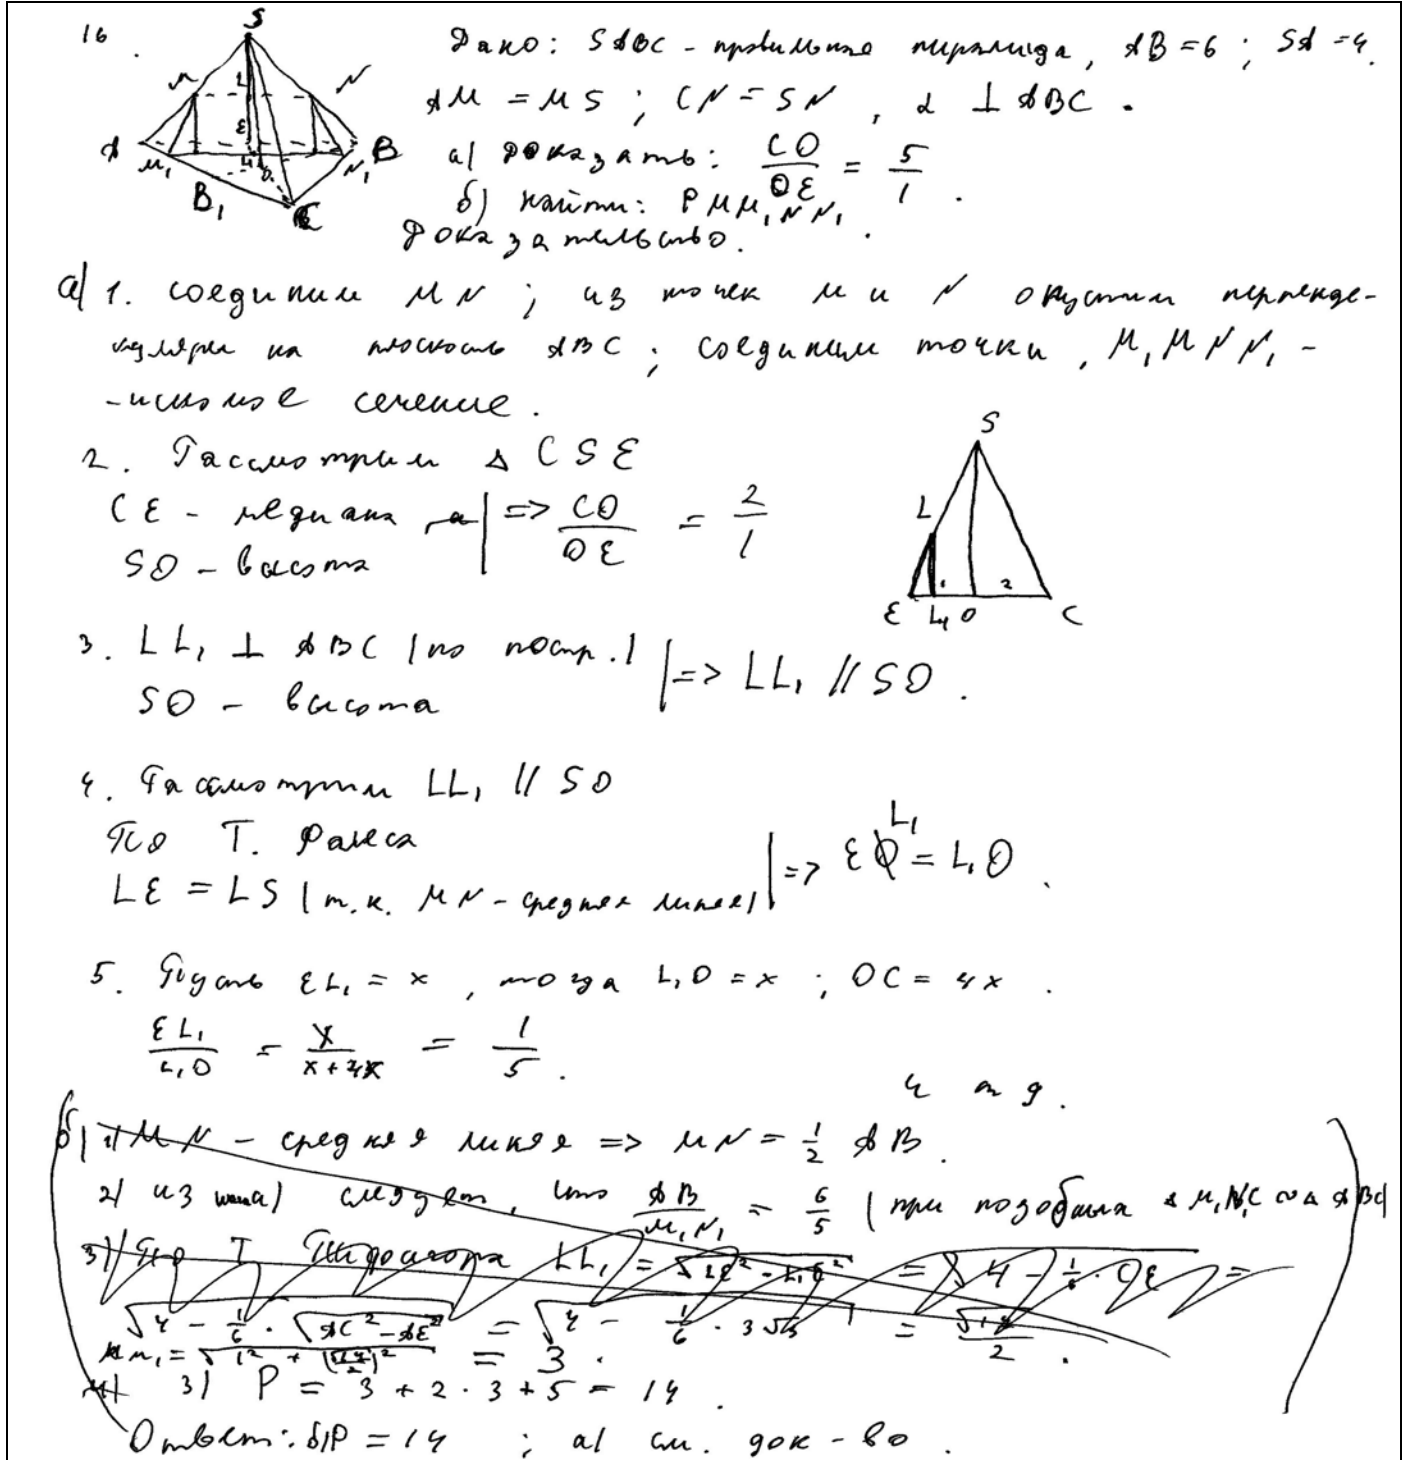 16.
S
M N
L
E
A B
M₁ L₁ O N₁
B₁ C
Дано: SABC - правильная пирамида, AB = 6 ; SA = 4.
AM = MS ; CN = SN , α ⊥ ABC .
а) Доказать: CO/OE = 5/1 .
б) найти: P MM₁NN₁ .
Доказательство.
а) 1. Соединим MN ; из точек M и N опустим перпенде-
кулярки на плоскость ABC ; соединим точки , M₁MNN₁ -
- искомое сечение .
2. Рассмотрим Δ CSE
CE - медиана | => CO/OE = 2/1
SO - высота
S
L
1 2
E L₁ O C
3. LL₁ ⊥ ABC (по постр.) | => LL₁ // SO .
SO - высота
4. Рассмотрим LL₁ // SO
По Т. Фалеса
LE = LS (т.к. MN - средняя линия) | => EL₁ = L₁O .
5. Пусть EL₁ = x , тогда L₁O = x ; OC = 4x .
EL₁/L₁O = x/(x+4x) = 1/5 .
ч т д .
б) 1) MN - средняя линия => MN = 1/2 AB .
2) из а) следует, что AB/M₁N₁ = 6/5 (при подобия Δ M₁N₁C ∾ Δ ABC)
3) По Т Пифагора LL₁ = √(LE² - L₁E²) = √(4 - 1/6 · CE) =
√(4 - 1/6 · √(AC² - AE²)) = √(4 - 1/6 · 3√3) =
MM₁ = = 3 .
3) P = 3 + 2 · 3 + 5 = 14 .
Ответ: б) P = 14 ; а) см. док - во .